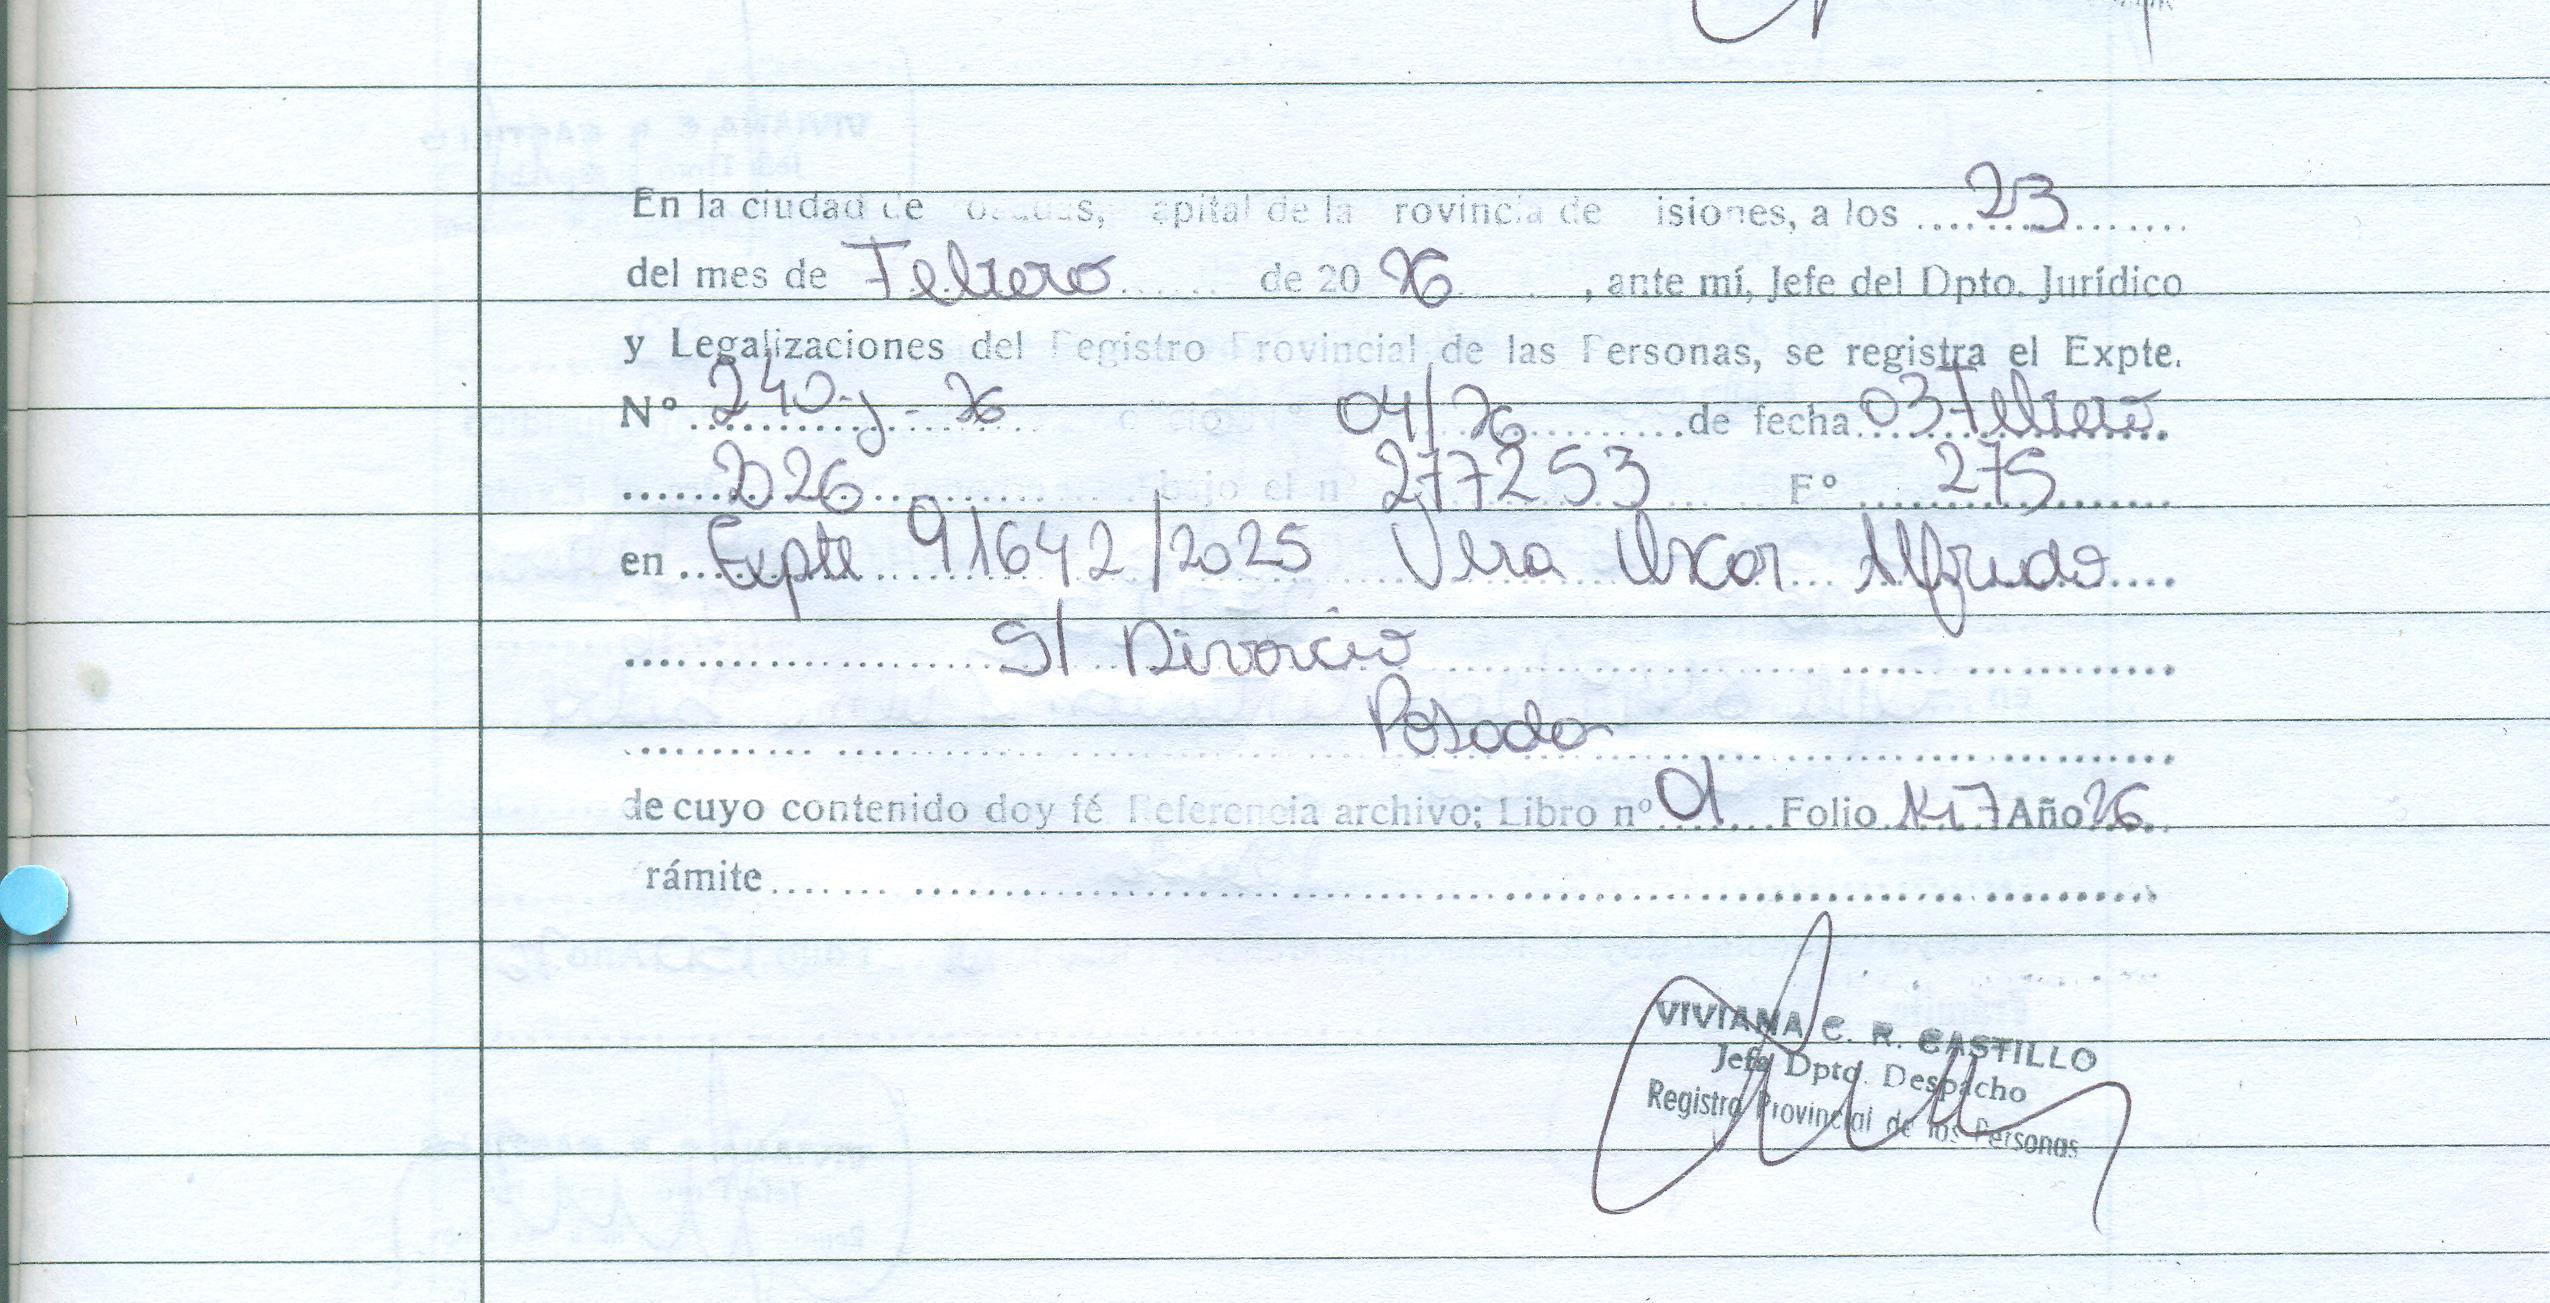 En la ciudad de Posadas, Capital de la Provincia de Misiones, a los 23
del mes de Febrero de 20 26, ante mí, Jefe del Dpto. Jurídico
y Legalizaciones del Registro Provincial de las Personas, se registra el Expte.
Nº 240-J-26 oficio nº 04/26 de fecha 03 Febrero
2026 bajo el nº 277253 Fº 275
en Expte 91642/2025 Vera Oscar Alfredo
S/ Divorcio
Posadas
de cuyo contenido doy fé Referencia archivo; Libro nº 01 Folio Año 26
Trámite
VIVIANA C. R. CASTILLO
Jefa Dpto. Despacho
Registro Provincial de las Personas